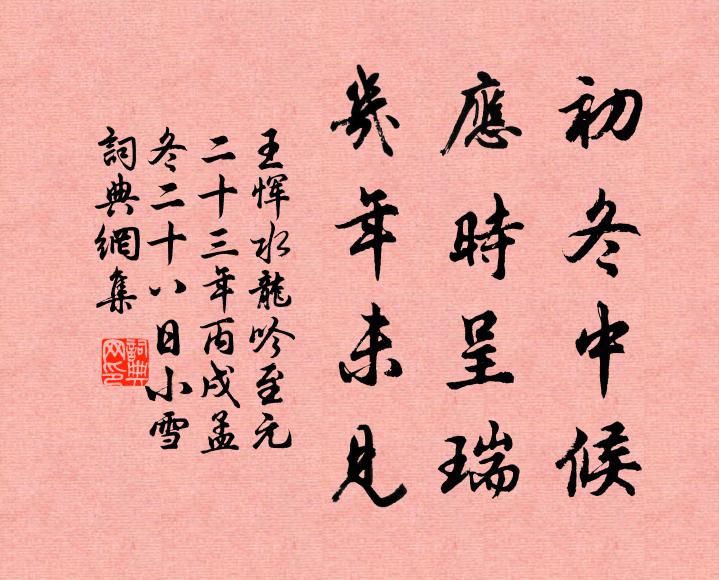 初冬中候
應時呈瑞
幾年未見
王惲水龍吟至元
二十三年丙戌孟
冬二十八日小雪
詞典網集
詞典網印